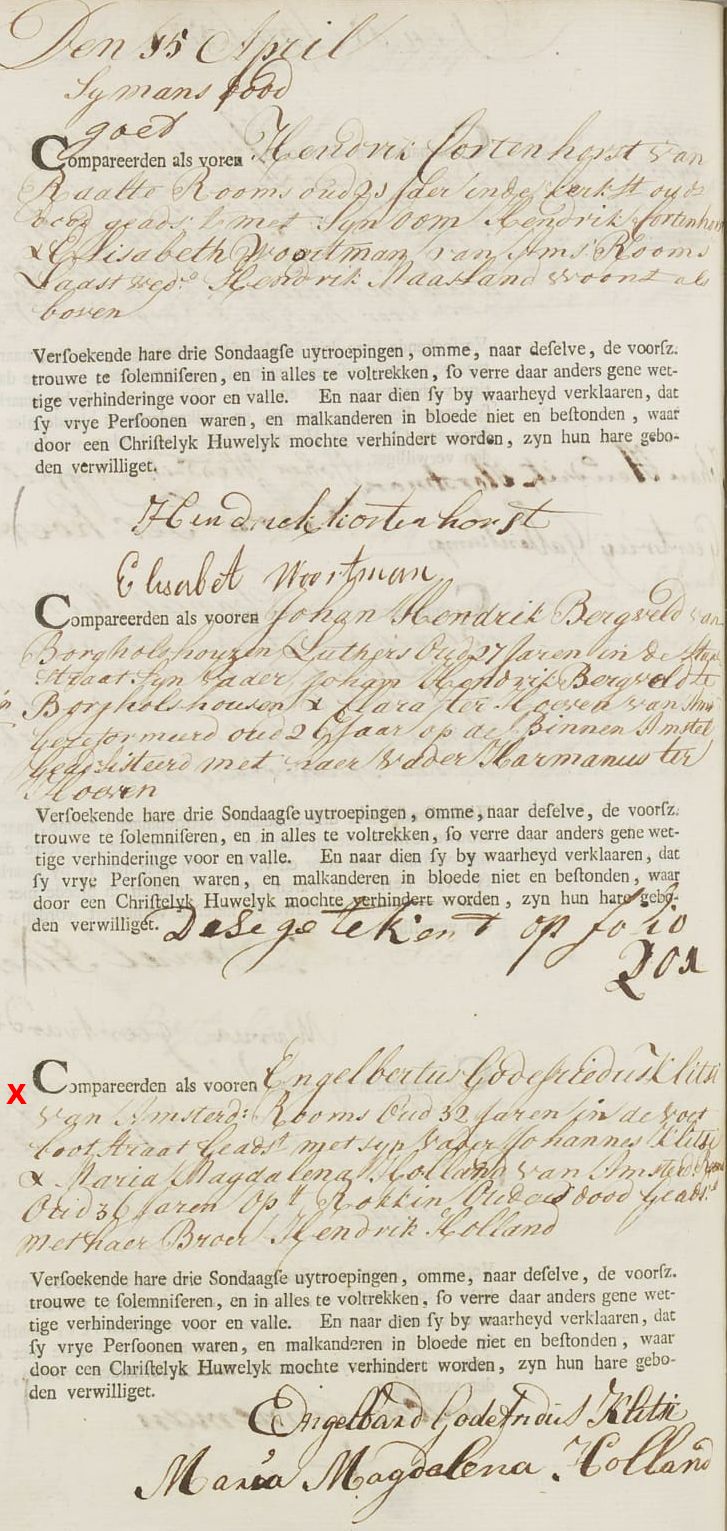 Den 15 April
Symans dood
goed
Compareerden als voren Hendrik Cortenhorst van
Raalte Rooms oud 23 Jaer in de kerkst ouds
dood geadst met Syn oom Hendrik Cortenhorst
& Elisabeth Woortman van Ams: Rooms
Laast wedo Hendrik Maasland woont als
boven
Versoekende hare drie Sondaagse uytroepingen, omme, naar deselve, de voorsz.
trouwe te solemniseren, en in alles te voltrekken, so verre daar anders gene wet-
tige verhinderinge voor en valle. En naar dien sy by waarheyd verklaaren, dat
sy vrye Persoonen waren, en malkanderen in bloede niet en bestonden, waar
door een Christelyk Huwelyk mochte verhindert worden, zyn hun hare gebo-
den verwilliget.
Hendrick kortenhorst
Elisabet Woortman
Compareerden als vooren Johan Hendrik Bergveld van
Borgholshousen Luthers Oud 27 Jaren in de
straat Syn Vader Johan Hendrik Bergveld te
Borgholshousen & Clara ter Hoeven van Ams
gereformeerd oud 26 Jaar op de Binnen Amstel
geadsisteerd met haer Vader Harmanus ter
Hoeven
Versoekende hare drie Sondaagse uytroepingen, omme, naar deselve, de voorsz.
trouwe te solemniseren, en in alles te voltrekken, so verre daar anders gene wet-
tige verhinderinge voor en valle. En naar dien sy by waarheyd verklaaren, dat
sy vrye Personen waren, en malkanderen in bloede niet en bestonden, waar
door een Christelyk Huwelyk mochte verhindert worden, zyn hun hare gebo-
den verwilliget. Dese getekent op folio
201
X Compareerden als vooren Engelbertus Godefriedus Klitsi
van Amsterd: Rooms Oud 32 Jaren in de voet
boot straat Geadst met syn Vader Johannes Klitsi
& Maria Magdalena Holland van Amsterd Rooms
Oud 36 Jaren Opt Rokkin Ouders dood Geadst
met haer Broer Hendrik Holland
Versoekende hare drie Sondaagse uytroepingen, omme, naar deselve, de voorsz.
trouwe te solemniseren, en in alles te voltrekken, so verre daar anders gene wet-
tige verhinderinge voor en valle. En naar dien sy by waarheyd verklaaren, dat
sy vrye Persoonen waren, en malkanderen in bloede niet en bestonden, waar
door een Christelyk Huwelyk mochte verhindert worden, zyn hun hare gebo-
den verwilliget.
Engelbard Godefridus Klitsi
Maria Magdalena Holland